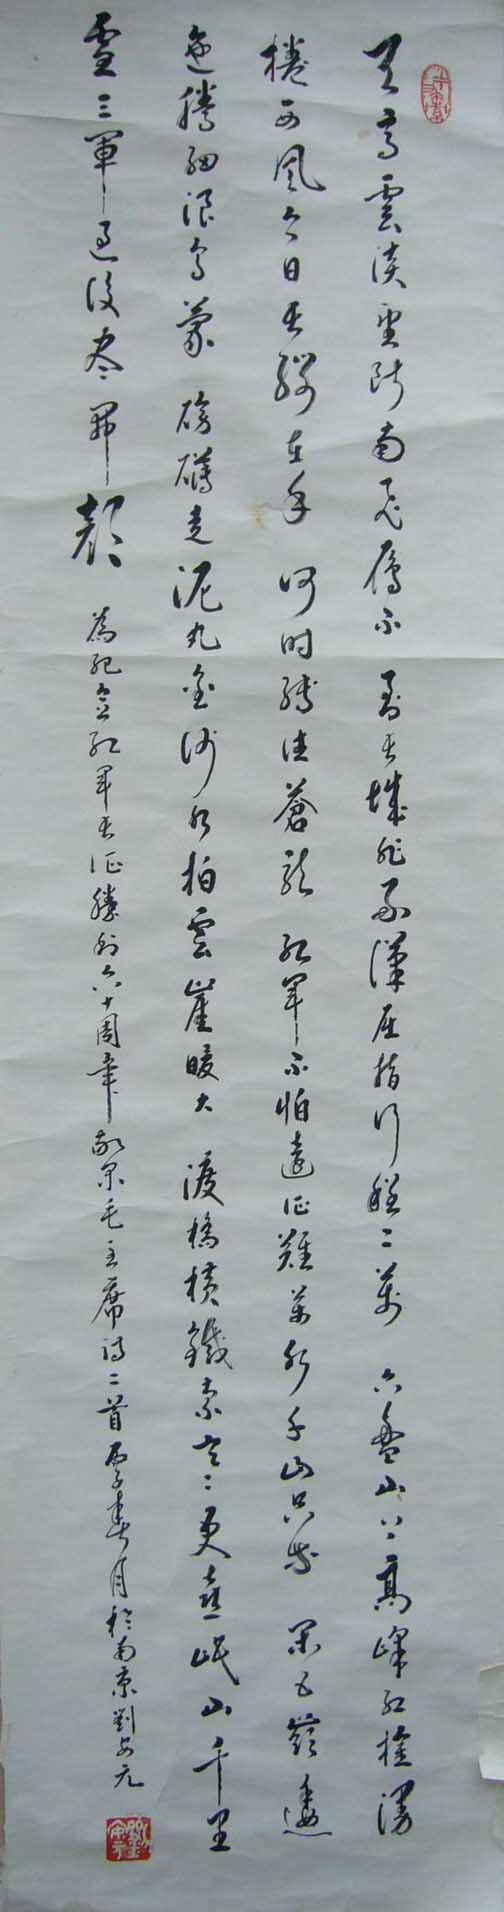 天高雲淡望断南飛雁不到長城非好漢屈指行程二萬六盤山上高峰紅旗漫
捲西風今日長纓在手何时縛住蒼龍紅軍不怕遠征難萬水千山只等閑五嶺逶
迤騰細浪烏蒙磅礴走泥丸金沙水拍雲崖暖大渡橋横鐵索寒更喜岷山千里
雪三軍過後尽開顏
為紀念紅軍長征勝利六十周年敬录毛主席詩二首丙子春月於南京劉安元